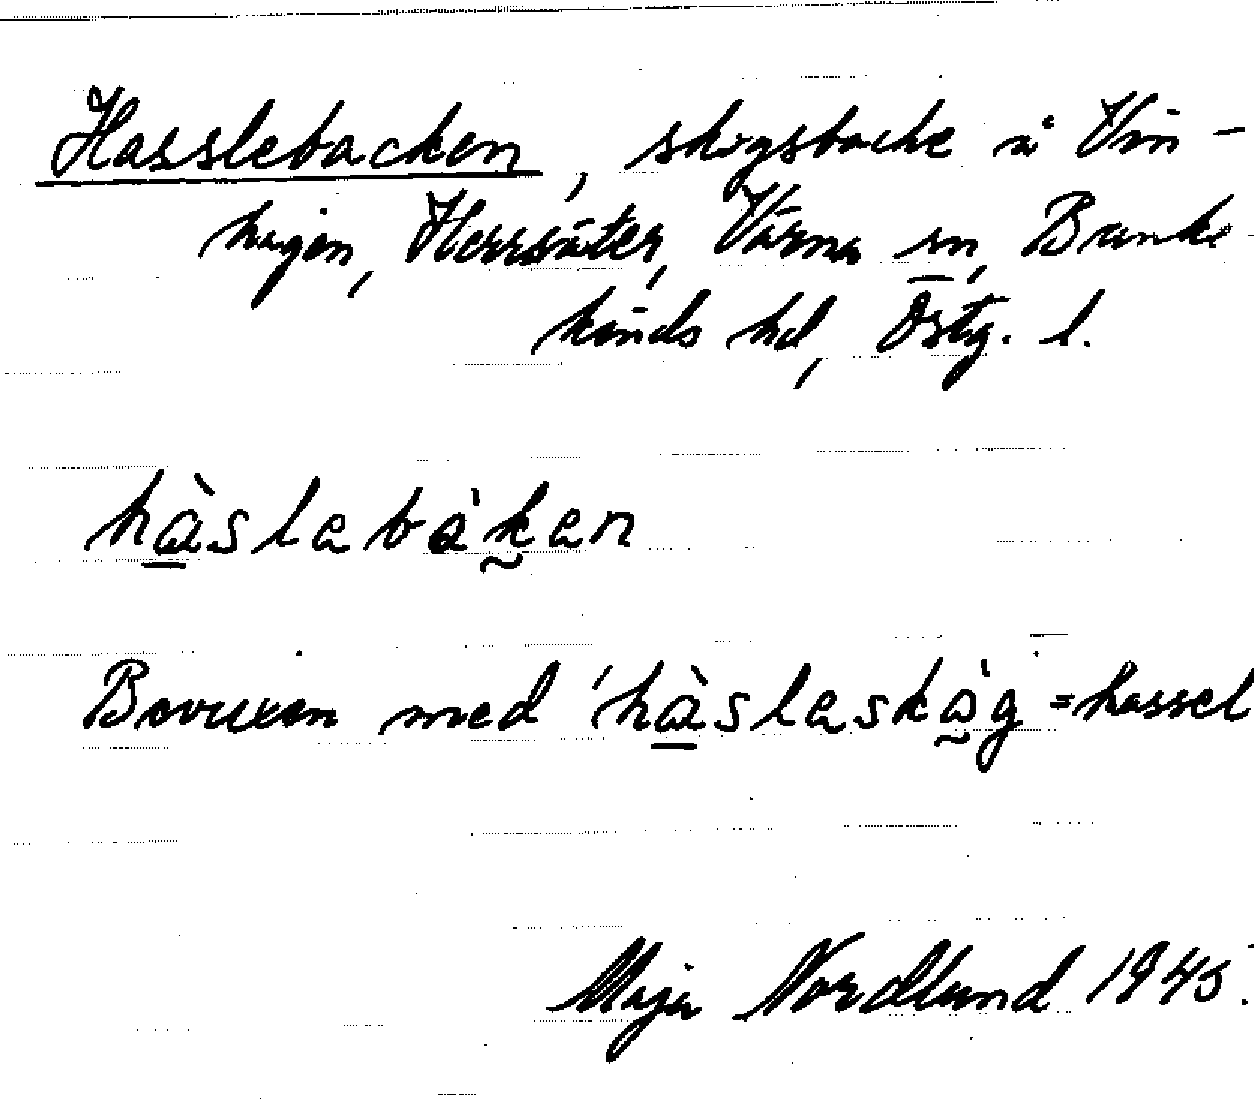 Hasslebacken, skogsbacke i Vin-
hagen, Herrsäter, Värna sn, Banke-
kinds hd, Östg. l.
hàslebàken
Bevuxen med 'hàsleskòg = hassel
Maja Nordlund 1945.